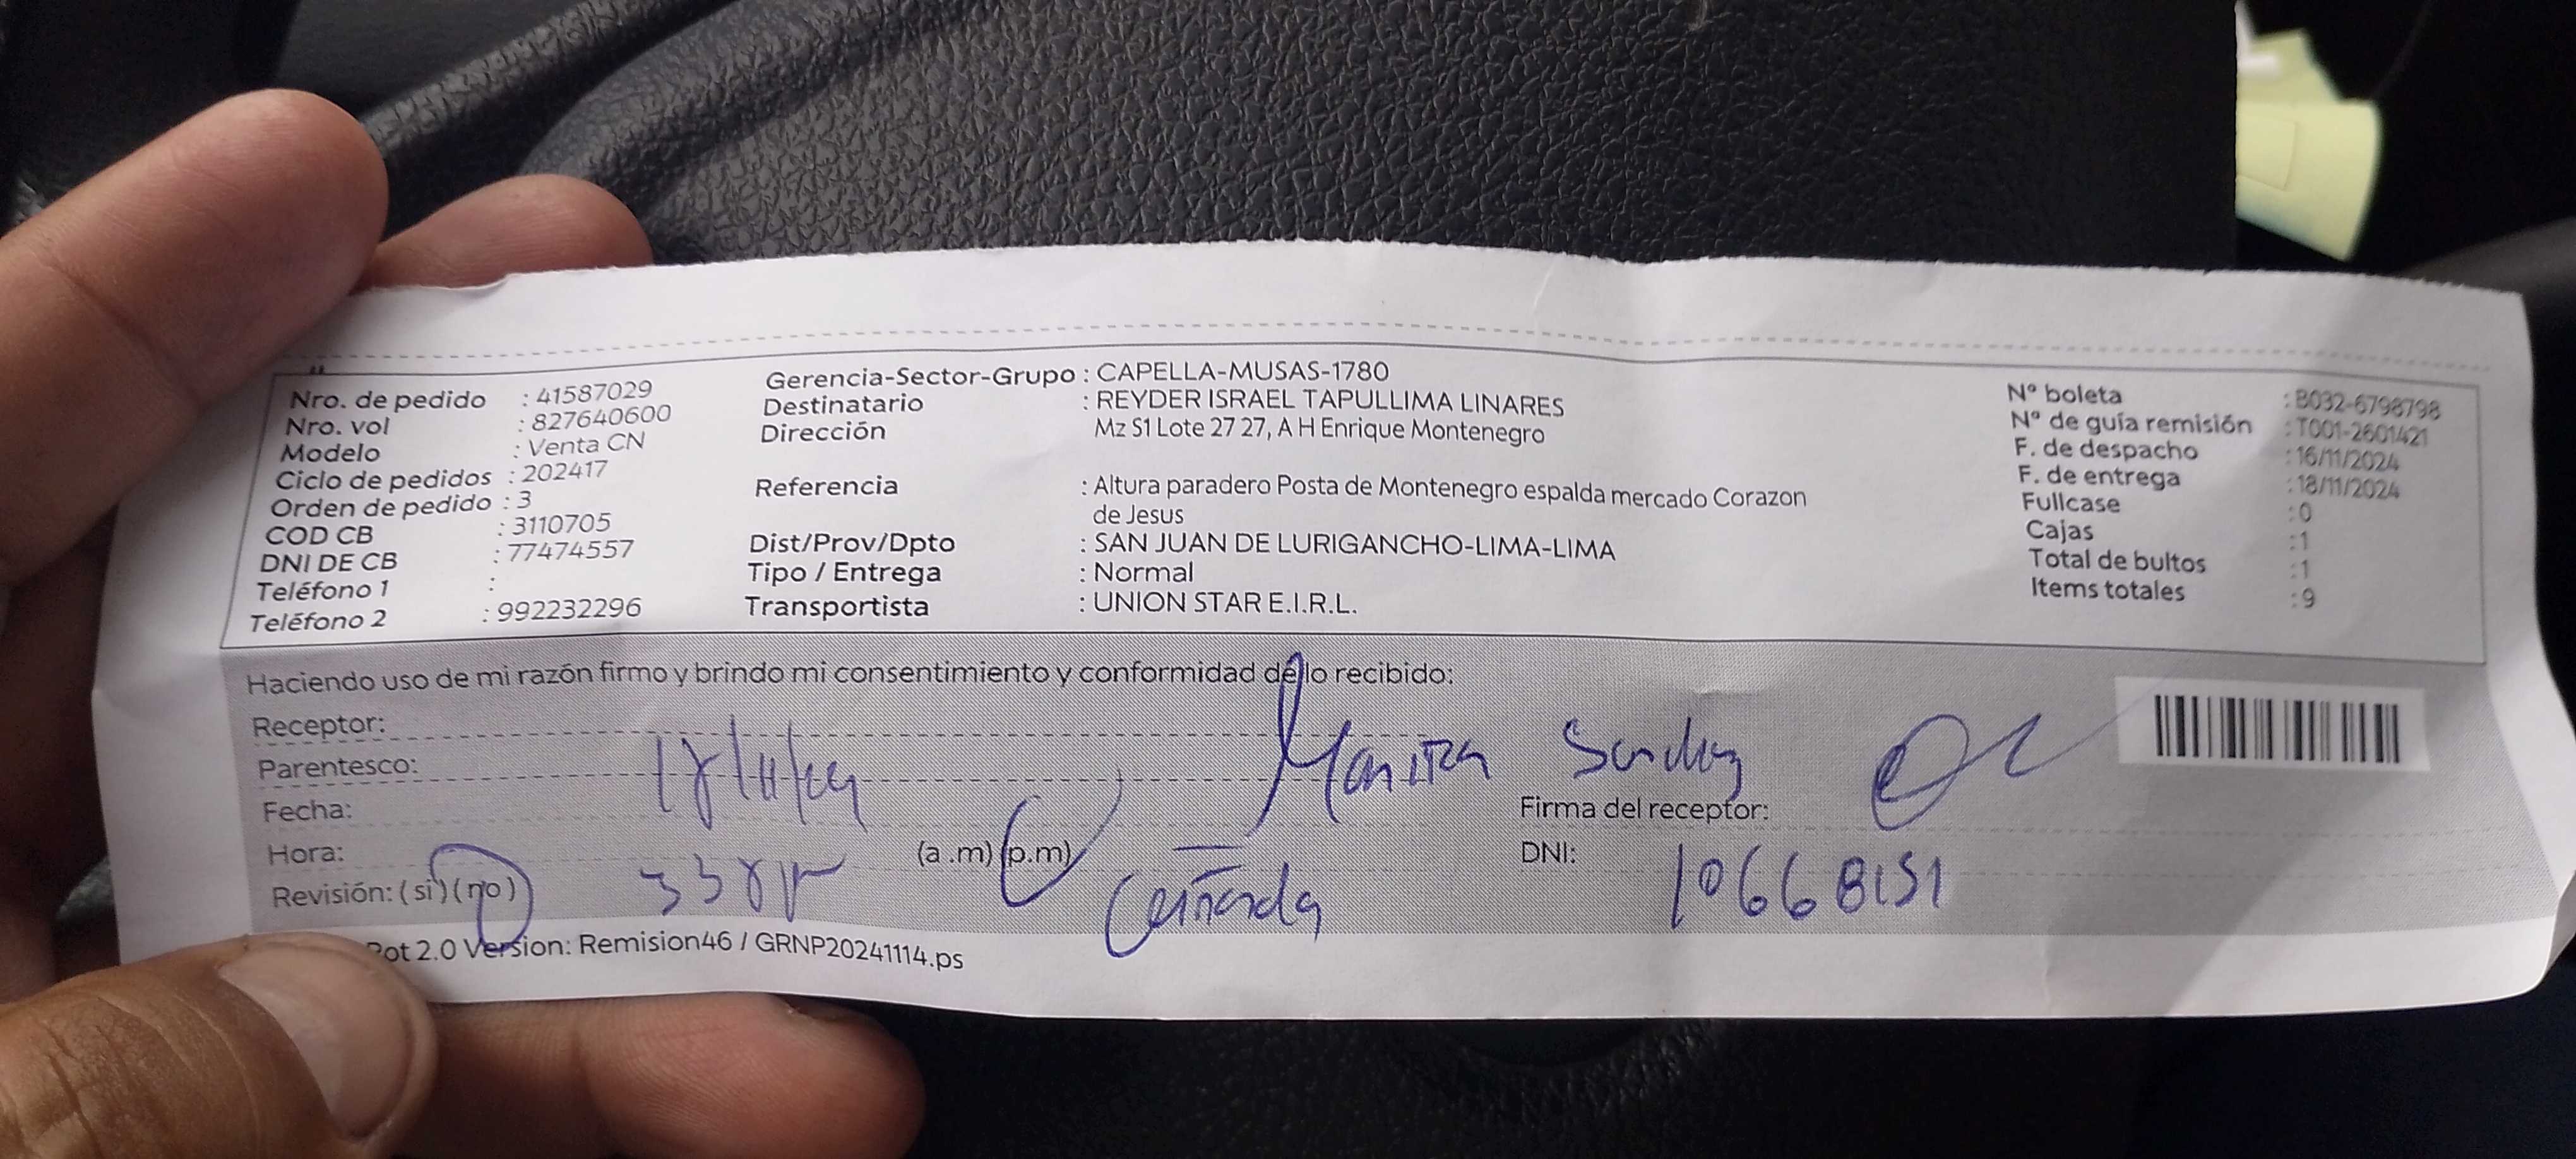 Nro. de pedido : 41587029
Nro. vol : 827640600
Modelo : Venta CN
Ciclo de pedidos : 202417
Orden de pedido : 3
COD CB : 3110705
DNI DE CB : 77474557
Teléfono 1 :
Teléfono 2 : 992232296
Gerencia-Sector-Grupo : CAPELLA-MUSAS-1780
Destinatario : REYDER ISRAEL TAPULLIMA LINARES
Dirección Mz S1 Lote 27 27, A H Enrique Montenegro
Referencia : Altura paradero Posta de Montenegro espalda mercado Corazon
de Jesus
Dist/Prov/Dpto : SAN JUAN DE LURIGANCHO-LIMA-LIMA
Tipo / Entrega : Normal
Transportista : UNION STAR E.I.R.L.
Nº boleta : B032-6798798
Nº de guía remisión : T001-2601421
F. de despacho : 16/11/2024
F. de entrega : 18/11/2024
Fullcase : 0
Cajas : 1
Total de bultos : 1
Items totales : 9
Haciendo uso de mi razón firmo y brindo mi consentimiento y conformidad de lo recibido:
Receptor:
Parentesco:
Fecha: 18/11/24
Hora: 338pm (a.m) (p.m)
Revisión: (si) (no)
Firma del receptor:
DNI: 10668151
Pot 2.0 Version: Remision46 / GRNP20241114.ps